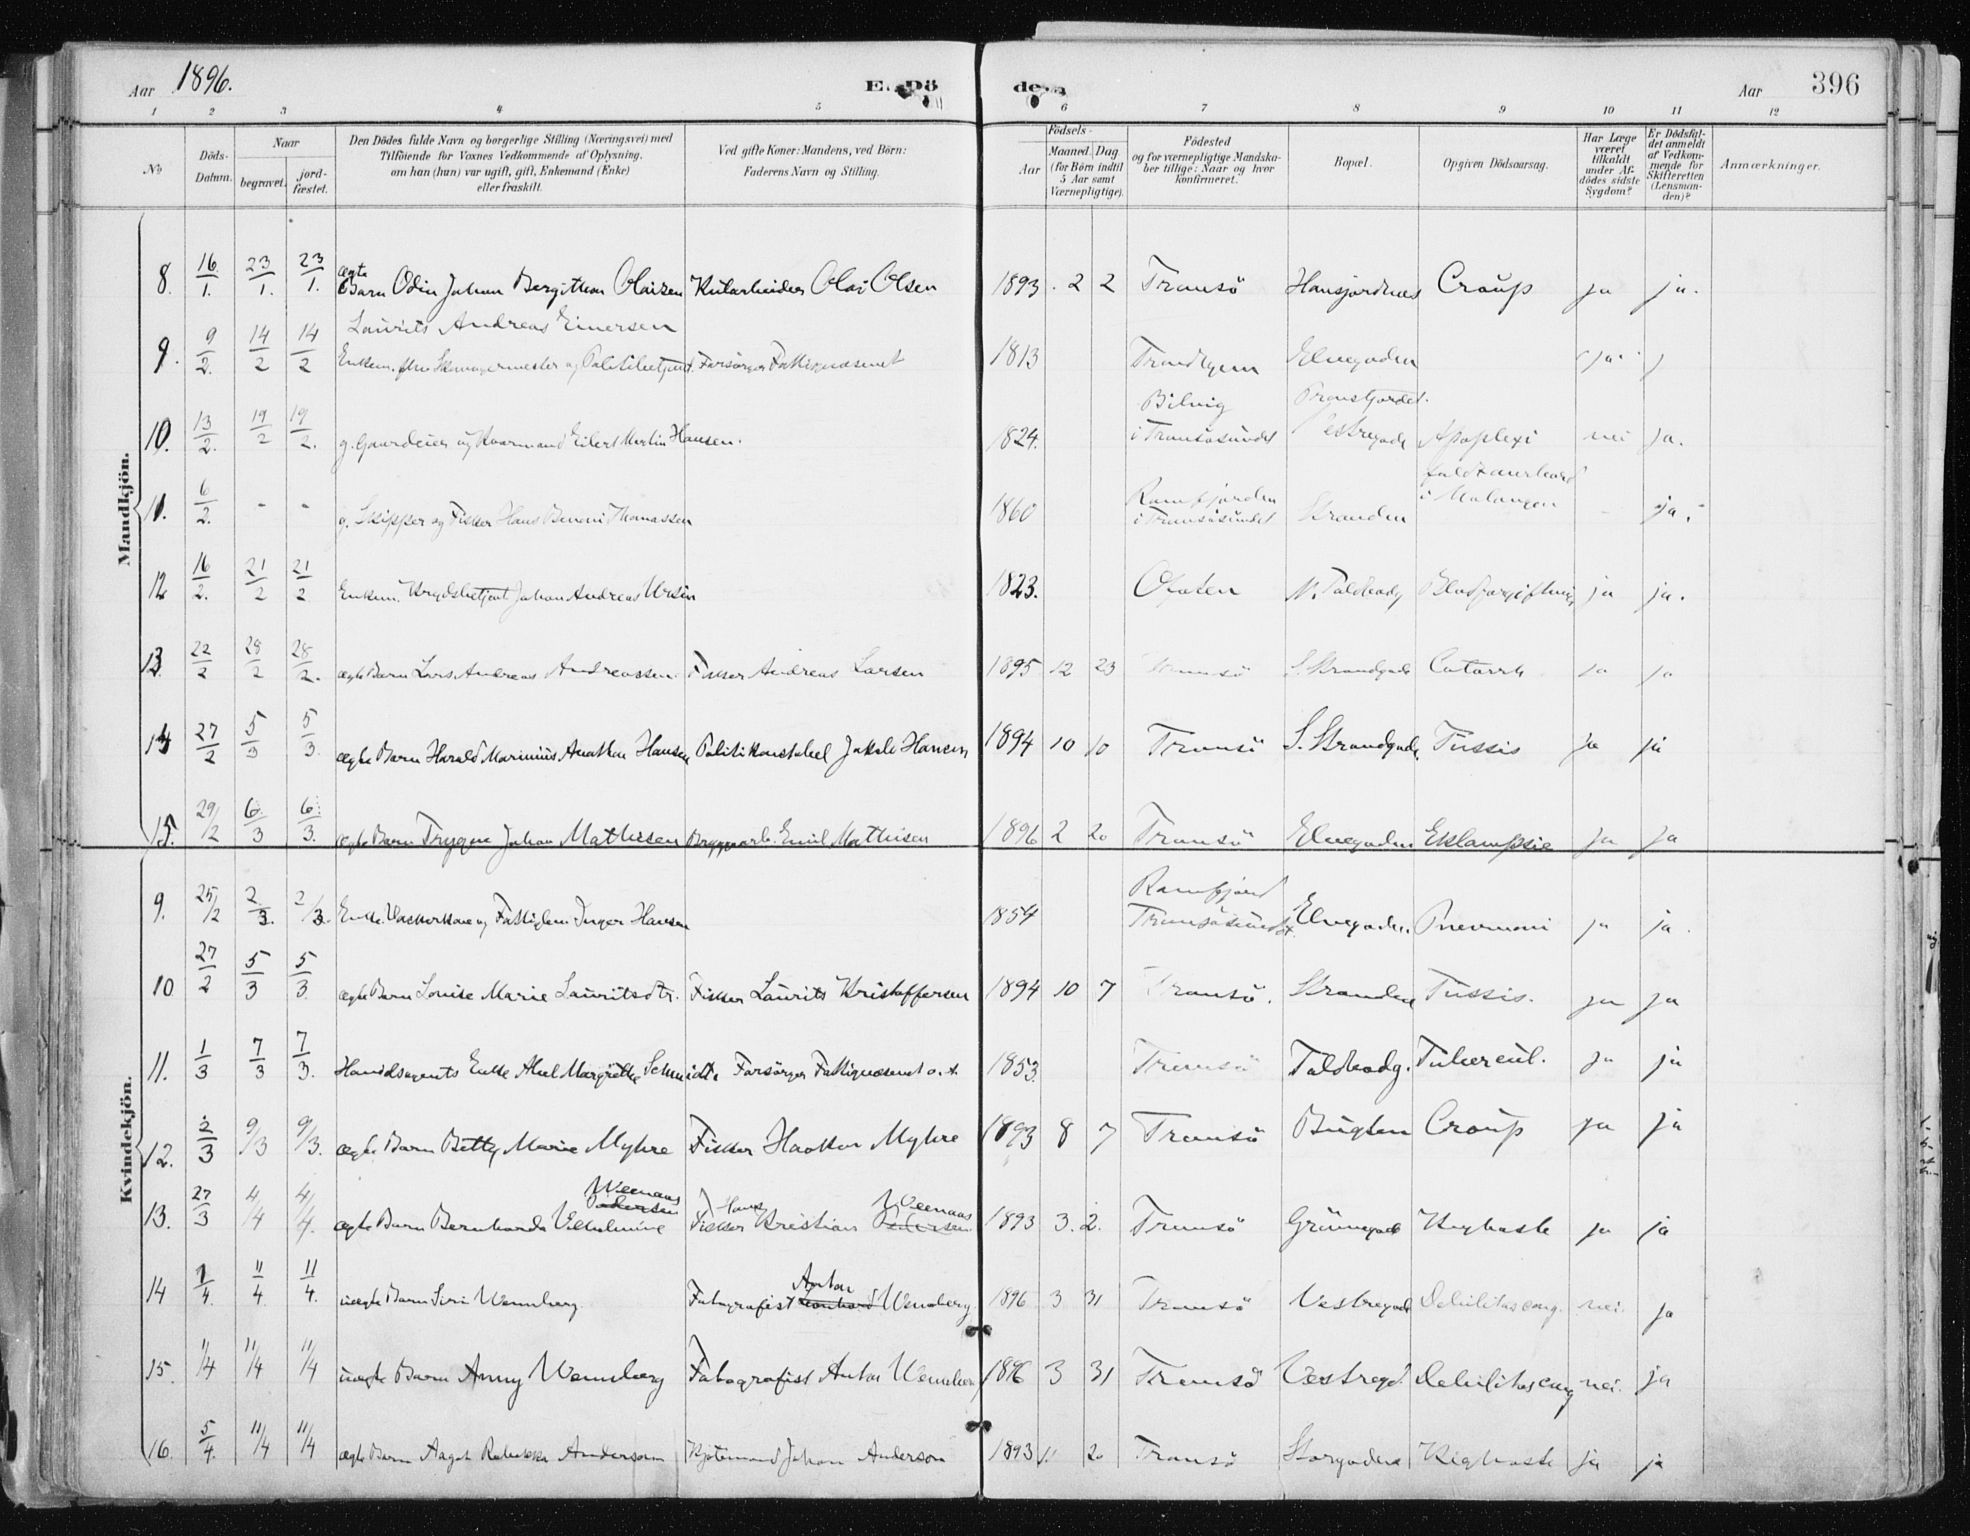 Aar 1896.
E. Dö
de
Aar 396
1 2 3 4 5 6 7 8 9 10 11 12
No
Döds-Datum.
Naar
begravet.
jord-fæstet.
Den Dödes fulde Navn og borgerlige Stilling (Næringsvei) med
Tilföiende for Voxnes Vedkommende af Oplysning,
om han (hun) var ugift, gift, Enkemand (Enke)
eller fraskilt.
Ved gifte Koner: Mandens, ved Börn:
Faderens Navn og Stilling.
Födsels-
Aar
Maaned. Dag
(for Børn indtil
5 Aar samt
Værnepligtige).
Födested
og for værnepligtige Mandska-
ber tillige: Naar og hvor
konfirmeret.
Bopæl.
Opgiven Dödsaarsag.
Har Læge
været
tilkaldt
under Af-
dödes sidste
Sygdom?
Er Dödsfal-
det anmeldt
af Vedkom-
mende for
Skifteretten
(Lensman-
den)?
Anmærkninger.
Mandkjön.
8. 16/1. 23/1. 23/1. ægte Barn Odin Johan Bergithon Olaisen Olai Olsen 1893. 2 2 Tromsö Hansjordnæs Croup ja ja.
9. 9/2. 14/2 14/2 Laurits Andreas Einersen
Enkem. Skomagermester og Politibetjent. Forsörges Fattigvæsenet 1813 Trondhjem Elvegaden ja
10. 13/2. 19/2 19/2. g. Gaardeier og Eilert Martin Hansen. 1824. i Tromsösundet Vestregade Apoplexi nei ja.
11. 6/2. - - g. Skipper og Fisker Hans Benoni Thomassen 1860 Ramfjorden
i Tromsösundet Stranden i Malangen - ja.
12 16/2. 21/2 21/2 Enkem. Johan Andreas Ursin 1823. Ofoten N. Toldbodg Blodforgiftning ja ja.
13. 22/2 28/2 28/2. ægte Barn Andreas Andreassen Fisker Andreas Larsen 1895 12 23 Tromsö S. Strandgade Catarrh ja ja
14 27/2 5/3 5/3. ægte Barn Harald Marinius Anathon Hansen Politikonstabel Jakob Hansen 1894 10 10 Tromsö S. Strandgade. Tussis ja ja
15. 29/2 6/3 6/3. ægte Barn Trygve Johan Mathisen Bryggearb. Emil Mathisen 1896 2 20 Tromsö Elvegaden Eklampsie ja ja
Kvindekjön.
9. 25/2 2/3. 2/3. Enke. Vaskerkone og Fattiglem Inger Hansen 1854 Ramfjord
Tromsösundet. Elvegaden. Pnevmoni ja ja.
10 27/2 5/3 5/3. ægte Barn Louise Marie Lauritsdtr. Fisker Laurits Kristoffersen 1894 10 7 Tromsö. Stranden Tussis. ja ja
11. 1/3 7/3 7/3. Handelsagents Enke Abel Margrethe Schmidt. Forsörges Fattigvæsenet o.s. 1853. Tromsö Toldbodg. Tubercul. ja ja
12. 2/3 9/3 9/3. ægte Barn Betty Marie Myhre Fisker Haakon Myhre 1893 8 7 Tromsö Bugten Croup ja ja
13. 27/3 4/4 4/4. ægte Barn Bernharda Vilhelmine Pedersen Weenaas Fisker Hans Kristian Pedersen Weenaas 1893 3. 2. Tromsö Grönnegade Kighoste ja ja
14 1/4. 11/4. 11/4. uægte Barn Siri Wennberg Fotografist Anton Wennberg 1896 3 31 Tromsö Vestregade Debilitas cong. nei. ja
15. 11/4 11/4 11/4 uægte Barn Anny Wennberg Fotografist Anton Wennberg 1896 3 31 Tromsö Vestregd. Debilitas cong nei. ja
16. 5/4. 11/4 11/4 ægte Barn Aagot Rebekka Anderson Johan Anderson 1893 11 20 Tromsö Storgaden Kighoste ja ja